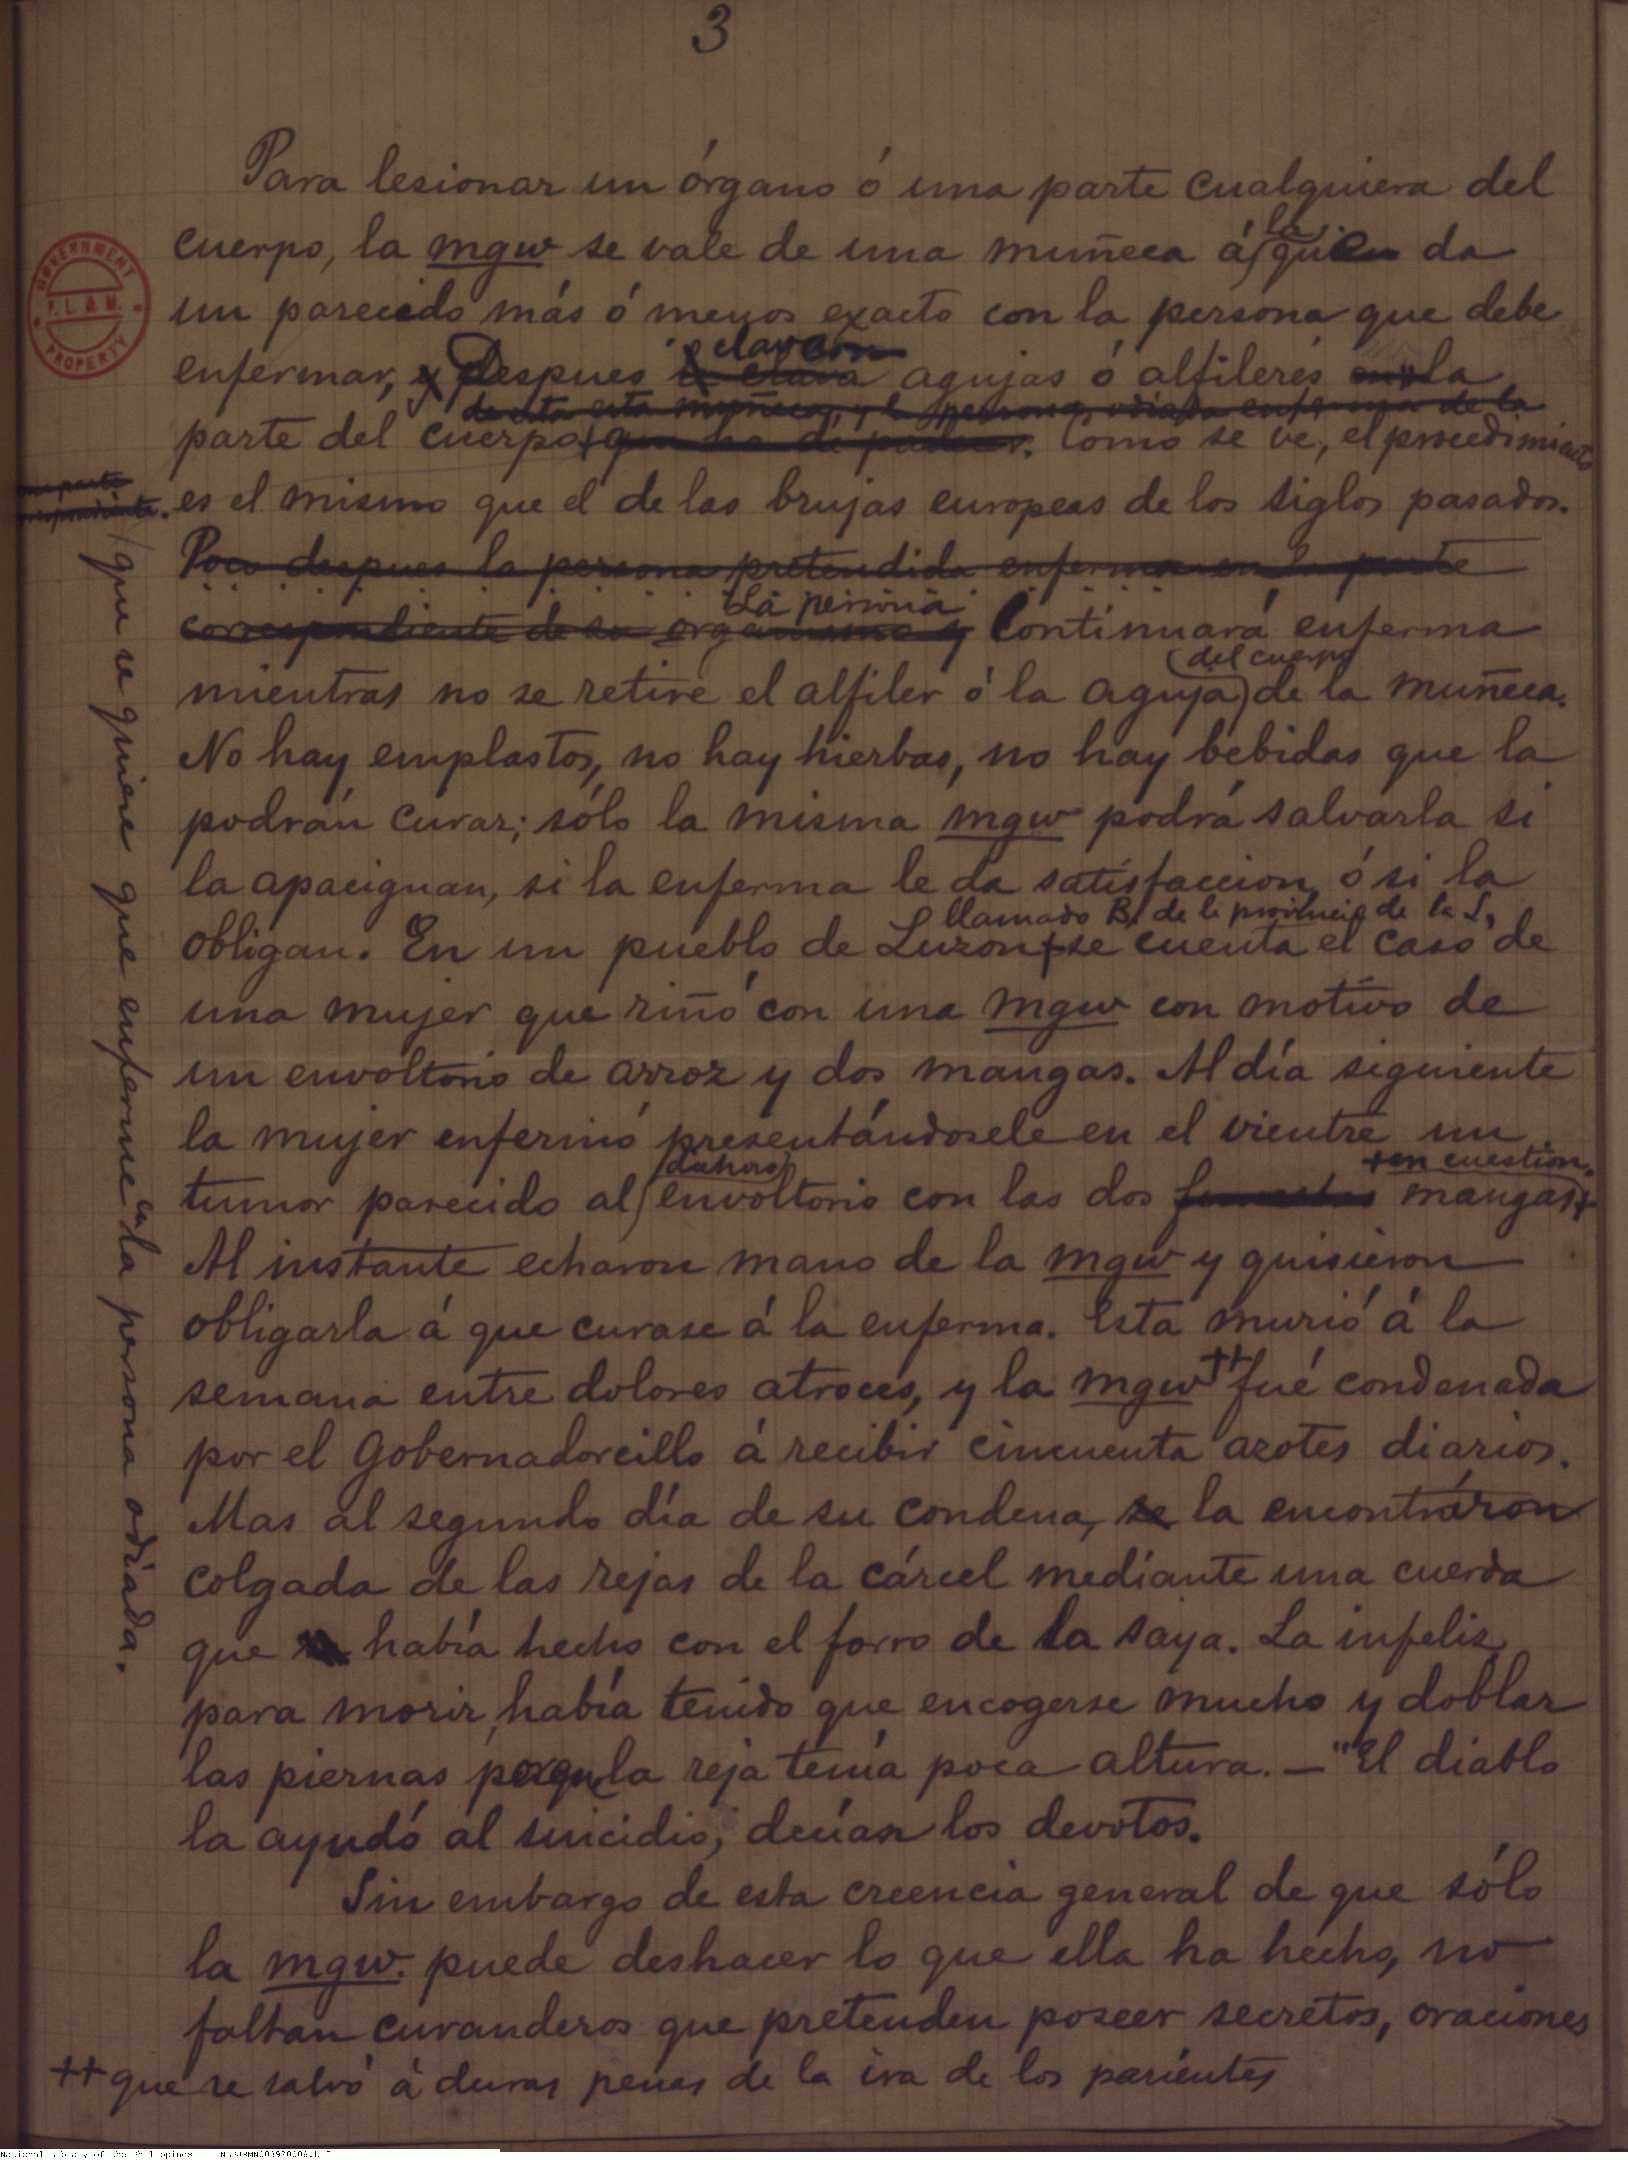 3
Para lesionar un órgano ó una parte cualquiera del
la
cuerpo, la mgw se vale de una muñeca á quien da
un parecido más ó menos exacto con la persona que debe
clavan
enfermar, y despues le clava agujas ó alfileres en la
de esta muñeca, y la persona odiada enferma de la
parte del cuerpo que ha de padecer. Como se ve, el procedimiento
es el mismo que el de las brujas europeas de los siglos pasados.
Poco despues la persona pretendida enferma en la parte
La persona
correspondiente de su organismo y Continuará enferma
del cuerpo
mientras no se retire el alfiler ó la aguja de la muñeca.
No hay emplastos, no hay hierbas, no hay bebidas que la
podrán curar; sólo la misma mgw podrá salvarla si
la apaciguan, si la enferma le da satisfaccion ó si la
llamado B, de la provincia de la L,
obligan. En un pueblo de Luzon + se cuenta el caso de
una mujer que riñó con una mgw con motivo de
un envoltorio de arroz y dos mangas. Al día siguiente
la mujer enfermó presentándosele en el vientre un
dichoso
+ en cuestion.
tumor parecido al envoltorio con las dos mangas +
Al instante echaron mano de la mgw y quisieron
obligarla á que curase á la enferma. Esta murió á la
semana entre dolores atroces, y la mgw ++ fué condenada
por el Gobernadorcillo á recibir cincuenta azotes diarios.
Mas al segundo día de su condena, se la encontráron
colgada de las rejas de la cárcel mediante una cuerda
que había hecho con el forro de la saya. La infeliz
para morir, había tenido que encogerse mucho y doblar
las piernas porque la reja tenía poca altura. — "El diablo
la ayudó al suicidio, decían los devotos.
Sin embargo de esta creencia general de que sólo
la mgw. puede deshacer lo que ella ha hecho, no
faltan curanderos que pretenden poseer secretos, oraciones
++ que se salvó á duras penas de la ira de los parientes
que se quiere que enferme en la persona odiada.
GOVERNMENT
P.L.& M.
PROPERTY
National Library of the Philippines